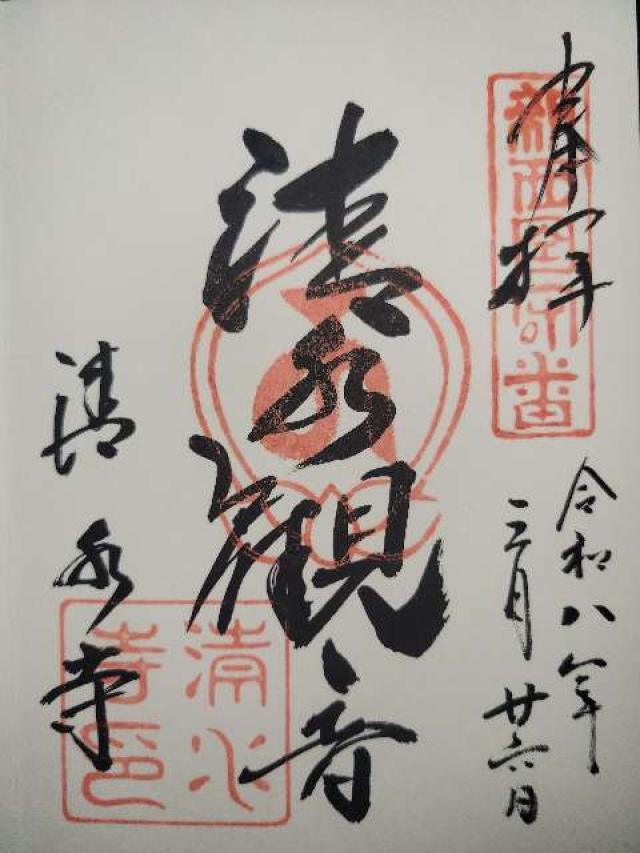 奉拝
令和八年
三月廿六日
清水観音
清水寺
清水
寺印